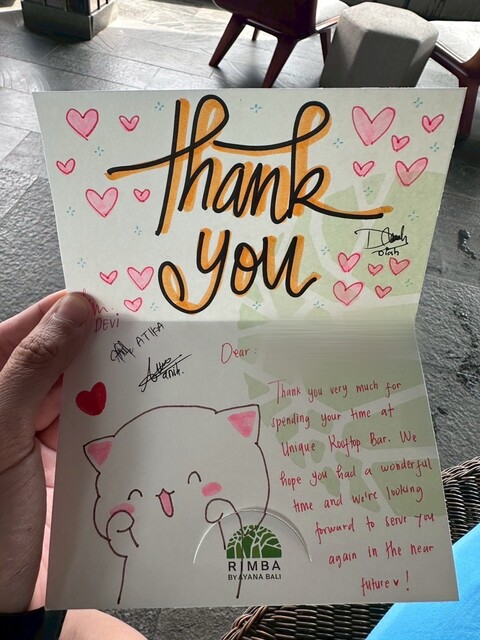 Thank
you
Diah
DEVI
ATIKA
Dear:
Thank you very much for
spending your time at
Unique Rooftop Bar. We
hope you had a wonderful
time and we're looking
forward to serve you
again in the near
future ♥ !
RIMBA
BY AYANA BALI